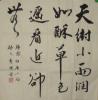 天街小雨潤
如酥草色
遥看近却
無